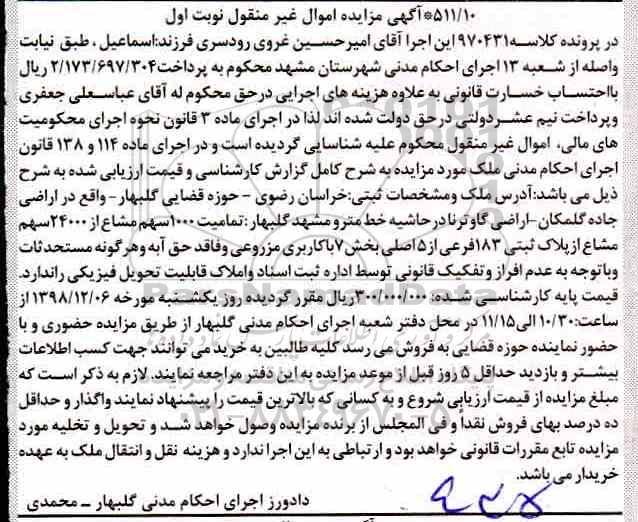 ۵۱۱/۱۰*آگهی مزایده اموال غیر منقول نوبت اول
در پرونده کلاسه۹۷۰۴۳۱ این اجرا آقای امیرحسین غروی رودسری فرزند:اسماعیل، طبق نیابت
واصله از شعبه ۱۳ اجرای احکام مدنی شهرستان مشهد محکوم به پرداخت۲/۱۷۳/۶۹۷/۳۰۴ ریال
بااحتساب خسارت قانونی به علاوه هزینه های اجرایی درحق محکوم له آقای عباسعلی جعفری
وپرداخت نیم عشردولتی درحق دولت شده اند لذا در اجرای ماده ۳ قانون نحوه اجرای محکومیت
های مالی، اموال غیر منقول محکوم علیه شناسایی گردیده است و در اجرای ماده ۱۱۴ و ۱۳۸ قانون
اجرای احکام مدنی ملک مورد مزایده به شرح کامل گزارش کارشناسی و قیمت ارزیابی شده به شرح
ذیل می باشد:آدرس ملک ومشخصات ثبتی:خراسان رضوی - حوزه قضایی گلبهار- واقع در اراضی
جاده گلمکان-اراضی گاوترنادرحاشیه خط مترو مشهد گلبهار: تمامیت۱۰۰۰سهم مشاع از ۲۴۰۰۰سهم
مشاع ازپلاک ثبتی ۱۸۳فرعی از۵ اصلی بخش۷باکاربری مزروعی وفاقد حق آبه وهرگونه مستحدثات
وباتوجه به عدم افراز وتفکیک قانونی توسط اداره ثبت اسناد واملاک قابلیت تحویل فیزیکی راندارد.
قیمت پایه کارشناسی شده: ۳۰۰/۰۰۰/۰۰۰ریال مقرر گردیده روز یکشنبه مورخه ۱۳۹۸/۱۲/۰۶ از
ساعت:۱۰/۳۰ الی۱۱/۱۵ در محل دفتر شعبه اجرای احکام مدنی گلبهار از طریق مزایده حضوری و با
حضور نماینده حوزه قضایی به فروش می رسد کلیه طالبین به خرید می توانند جهت کسب اطلاعات
بیشتر و بازدید حداقل ۵ روز قبل از موعد مزایده به این دفتر مراجعه نمایند. لازم به ذکر است که
مبلغ مزایده از قیمت ارزیابی شروع و به کسانی که بالاترین قیمت را پیشنهاد نمایند واگذار و حداقل
ده درصد بهای فروش نقداً و فی المجلس از برنده مزایده وصول خواهد شد و تحویل و تخلیه مورد
مزایده تابع مقررات قانونی خواهد بود و ارتباطی به این اجرا ندارد و هزینه نقل و انتقال ملک به عهده
خریدار می باشد.
دادورز اجرای احکام مدنی گلبهار - محمدی